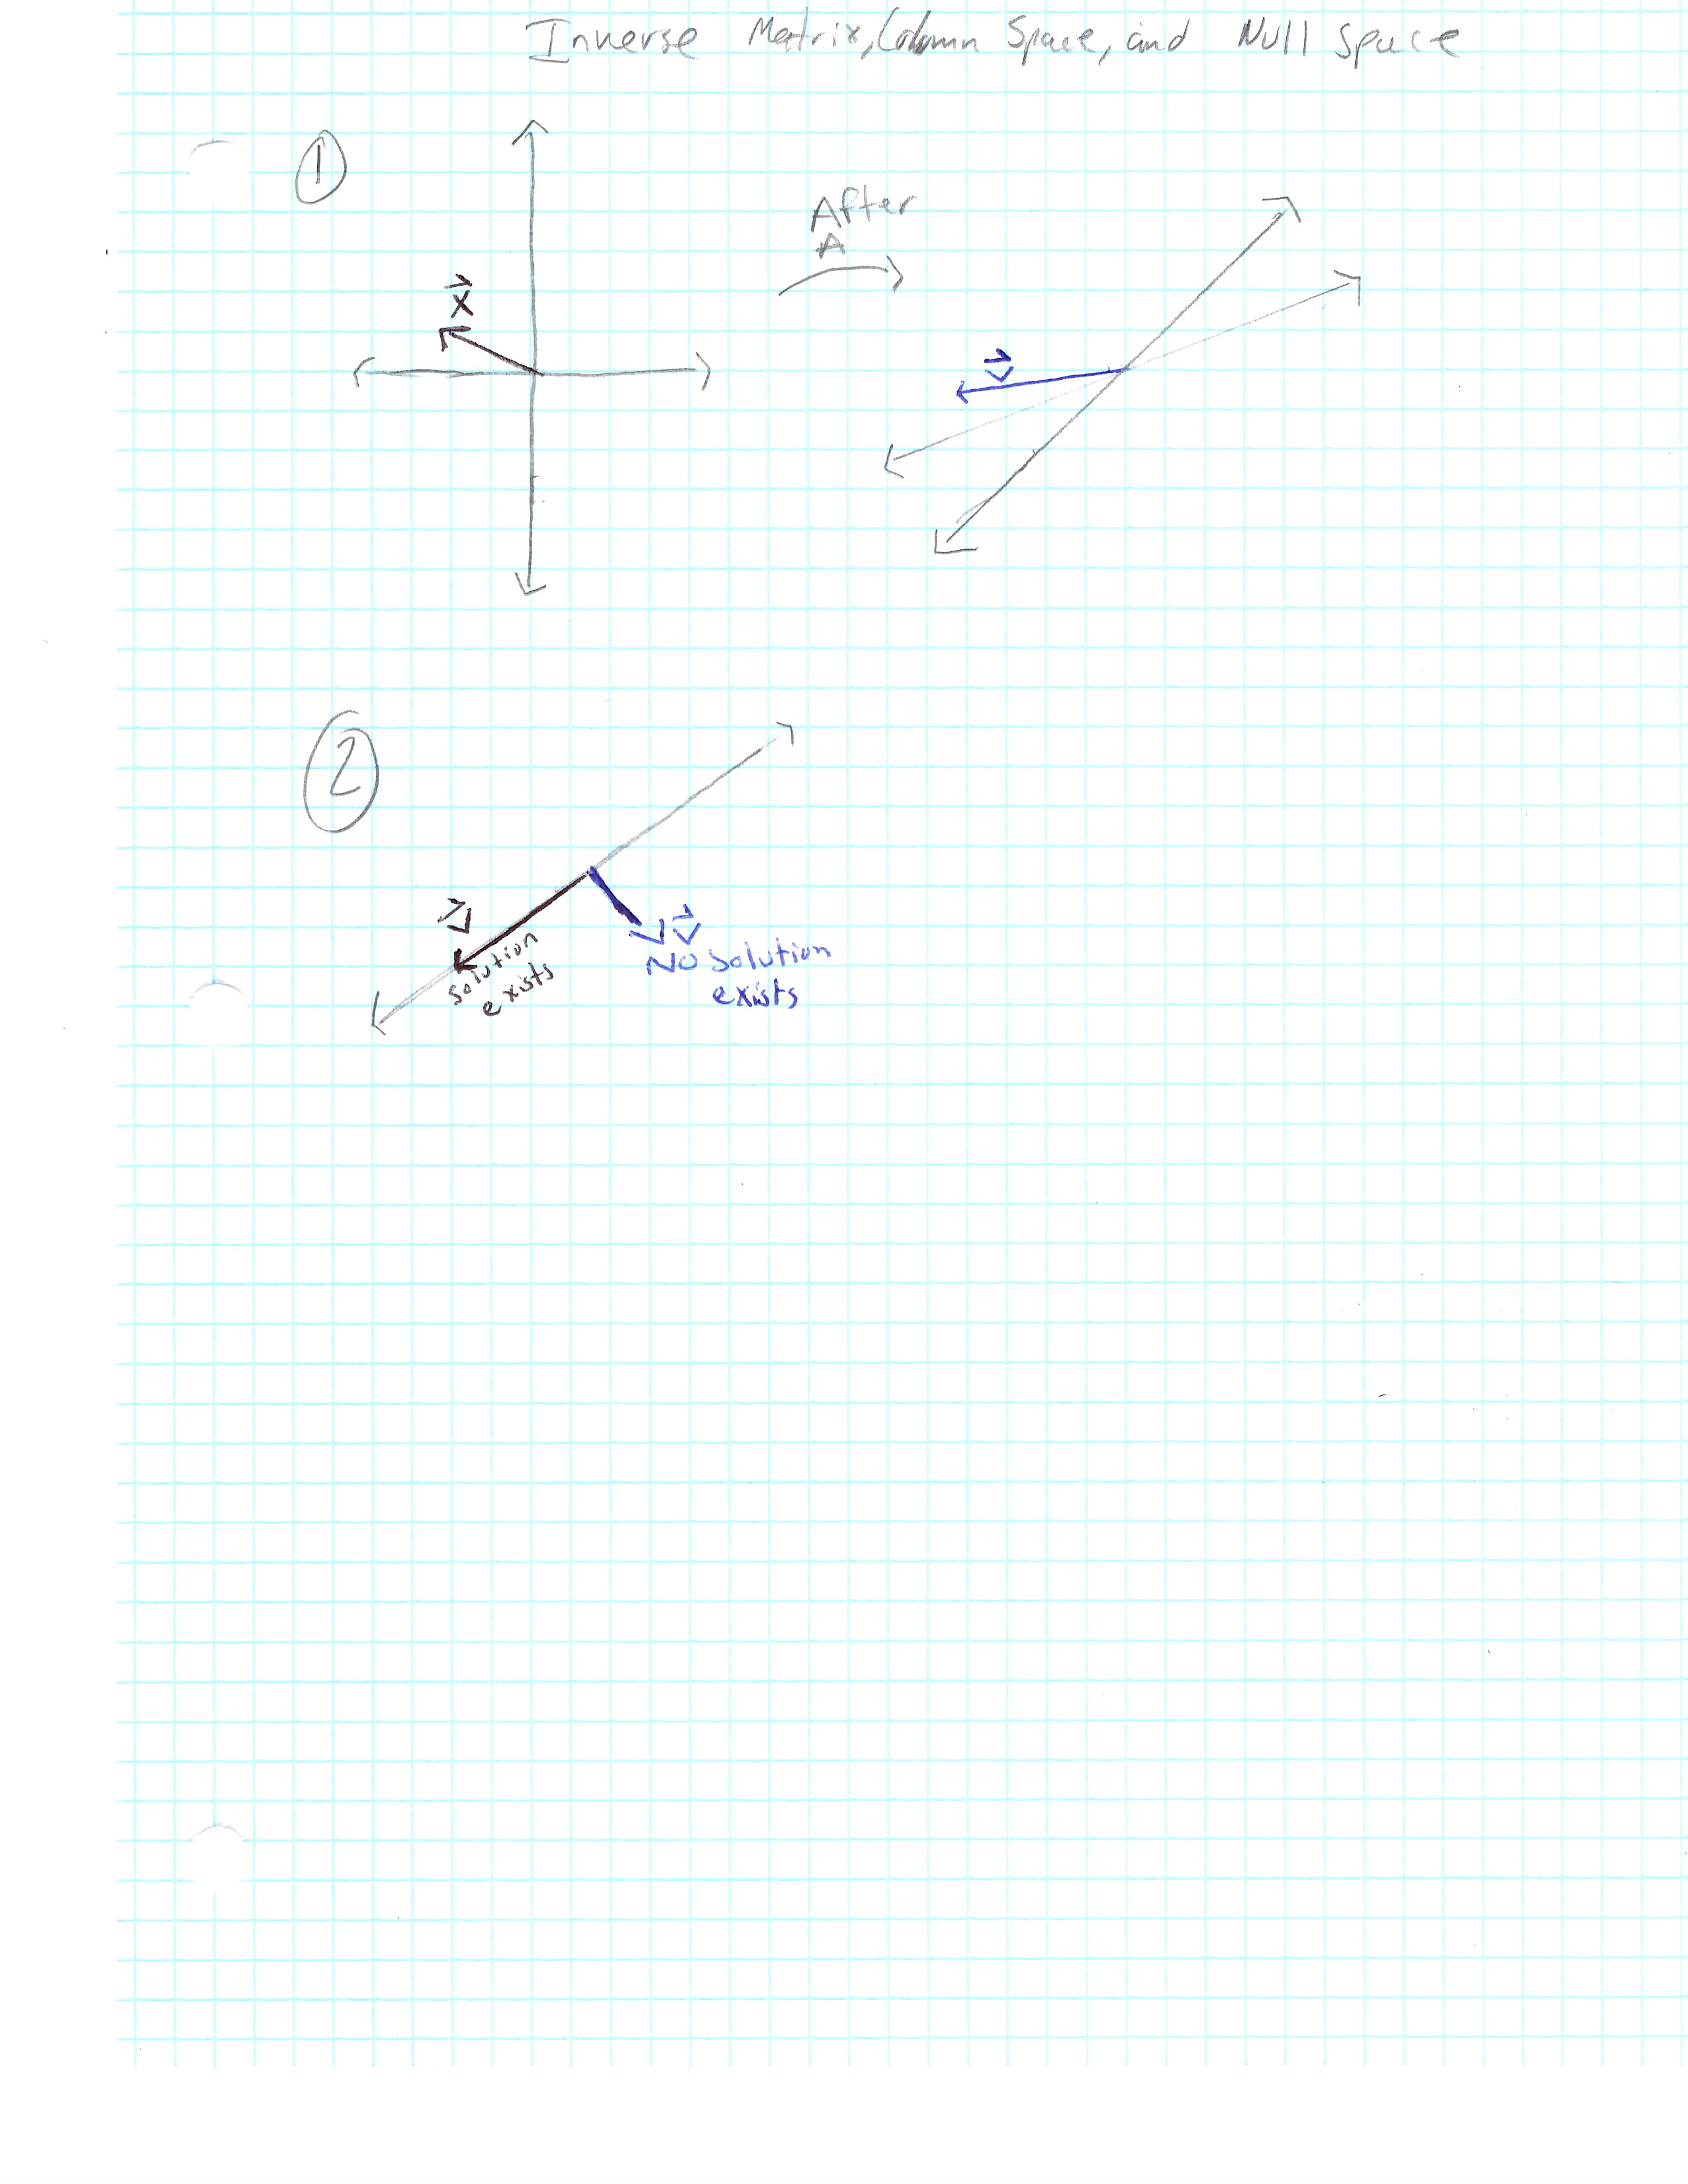 Inverse Matrix, Column Space, and Null Space
1
After
A
x
v
2
v
solution
exists
v
No solution
exists